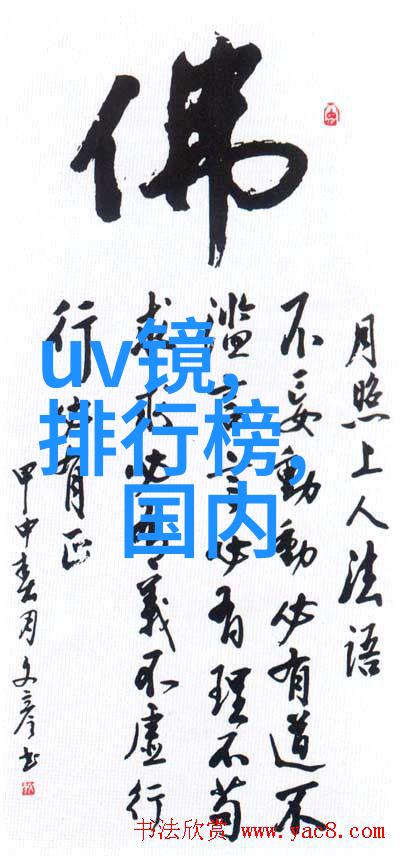 佛
月照上人法语
不妄動動必有道不
滥言言必有理不苟
求求必有義不虚行
行必有正
甲申春月文彦书
uv镜,
排行榜,
国内
书法欣赏 www.yac8.com